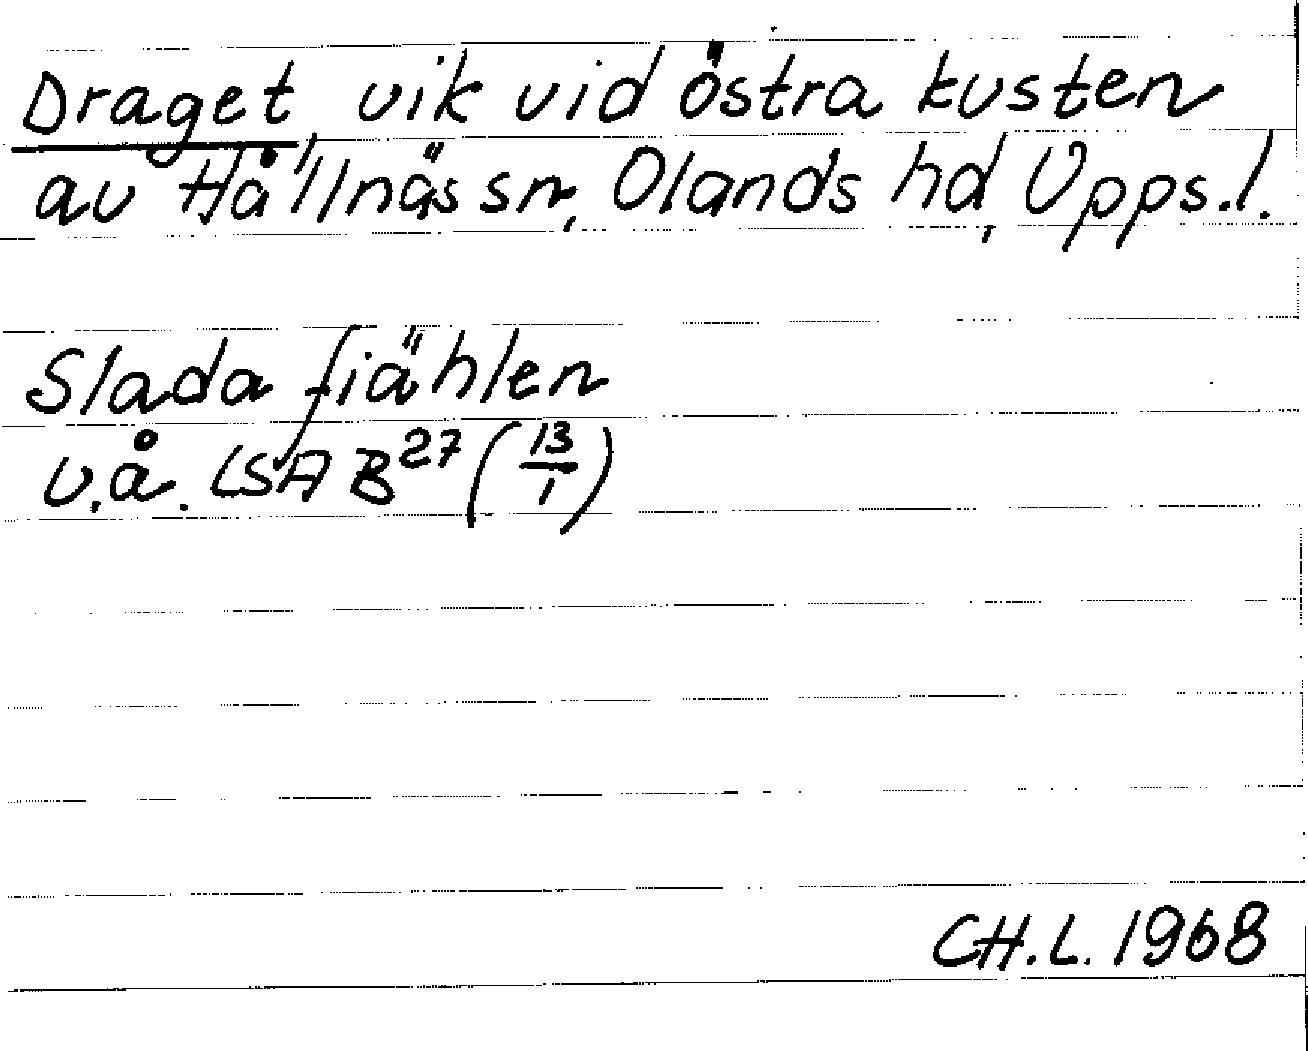 Draget, vik vid östra kusten
av Hållnäs sn, Olands hd, Upps.l.
Slada fiählen
u.å. LSA B27 (13/1)
CH.L. 1968